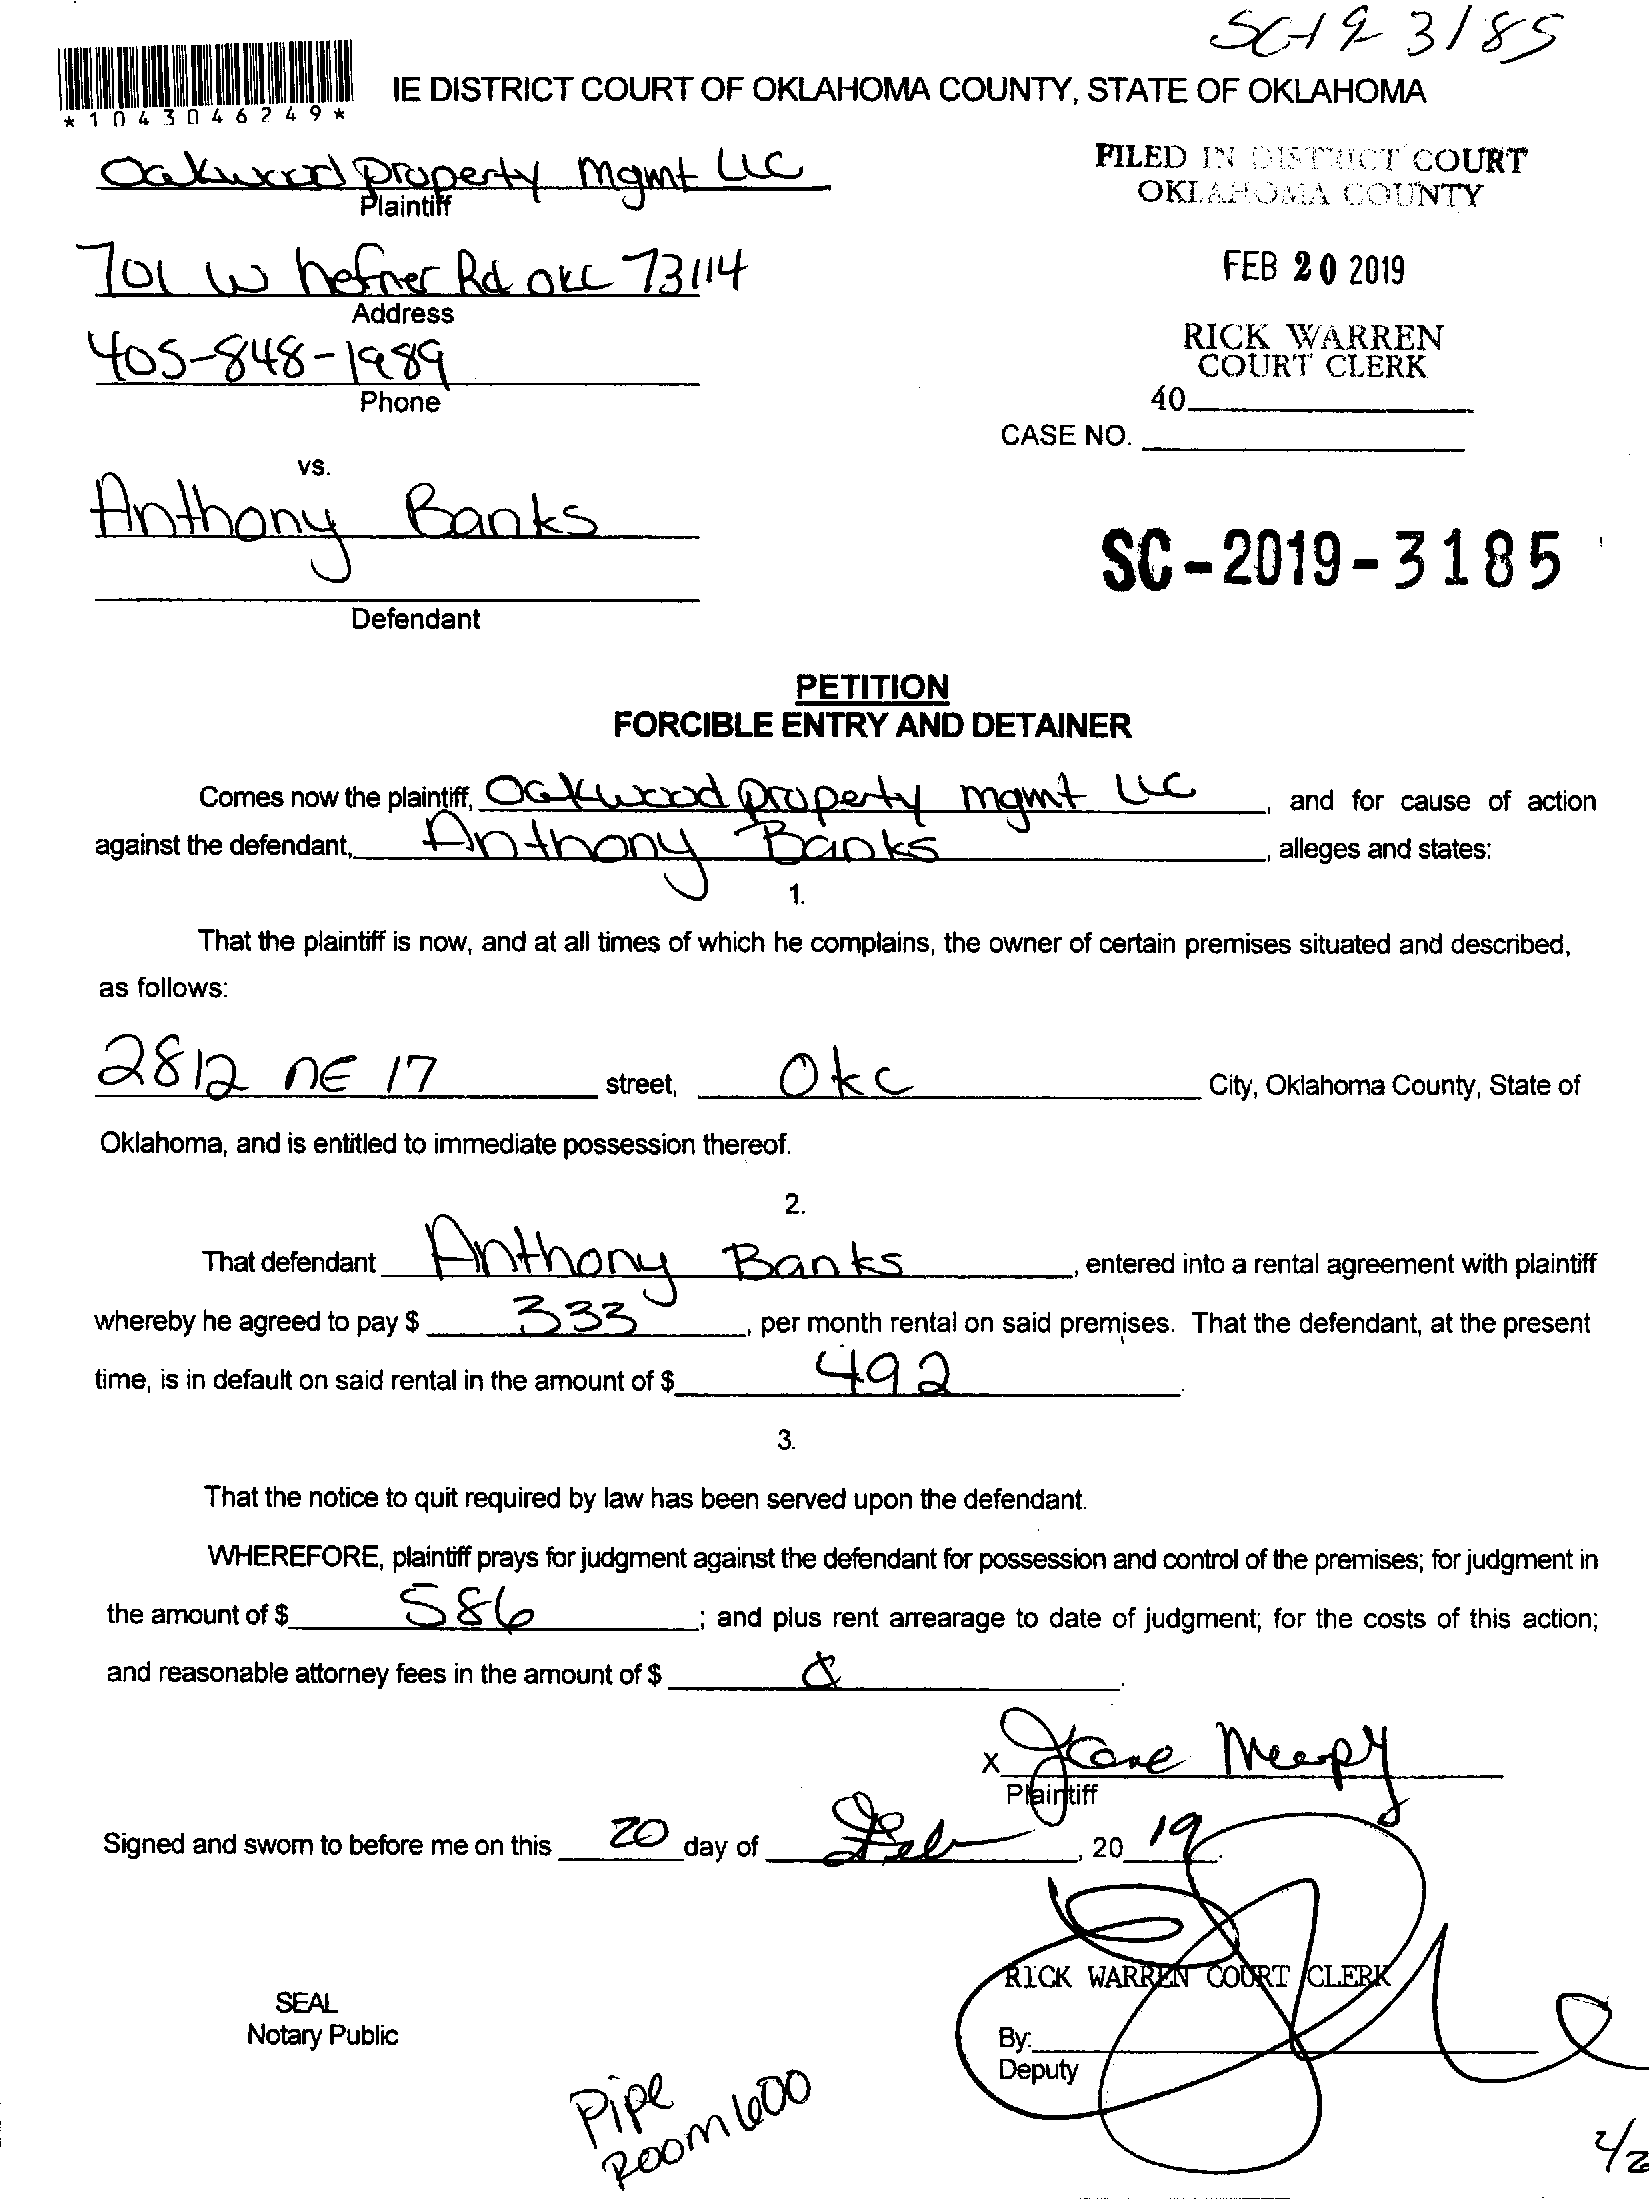 SC-19 3185
IE DISTRICT COURT OF OKLAHOMA COUNTY, STATE OF OKLAHOMA
*1043046249*
Oakwood property mgmt LLC
Plaintiff
FILED IN DISTRICT COURT
OKLAHOMA COUNTY
701 W hefner Rd OKC 73114
Address
FEB 20 2019
405-848-1989
Phone
RICK WARREN
COURT CLERK
40
CASE NO.
vs.
Anthony Banks
Defendant
SC-2019-3185
PETITION
FORCIBLE ENTRY AND DETAINER
Comes now the plaintiff, Oakwood property mgmt LLC, and for cause of action
against the defendant, Anthony Banks, alleges and states:
1.
That the plaintiff is now, and at all times of which he complains, the owner of certain premises situated and described,
as follows:
2812 NE 17 street, OKC City, Oklahoma County, State of
Oklahoma, and is entitled to immediate possession thereof.
2.
That defendant Anthony Banks, entered into a rental agreement with plaintiff
whereby he agreed to pay $ 333, per month rental on said premises. That the defendant, at the present
time, is in default on said rental in the amount of $ 492.
3.
That the notice to quit required by law has been served upon the defendant.
WHEREFORE, plaintiff prays for judgment against the defendant for possession and control of the premises; for judgment in
the amount of $ 586; and plus rent arrearage to date of judgment; for the costs of this action;
and reasonable attorney fees in the amount of $
x
Plaintiff
Signed and sworn to before me on this 20 day of Feb, 20 19.
RICK WARREN COURT CLERK
SEAL
Notary Public
By:
Deputy
Pipe
Room 600